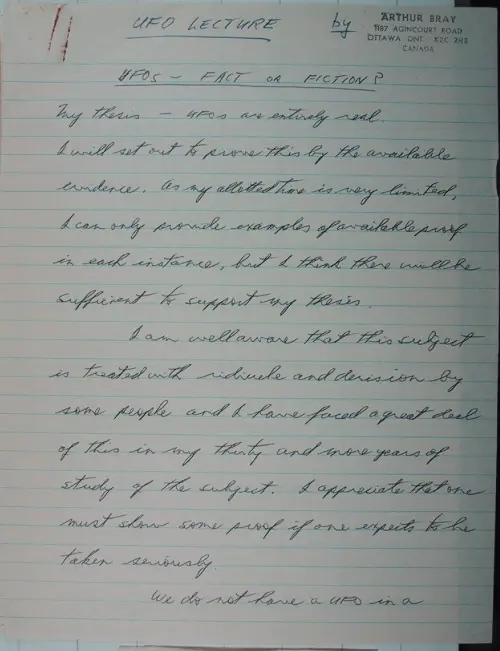 UFO LECTURE by ARTHUR BRAY
1187 AGINCOURT ROAD
OTTAWA ONT K2C 2H8
CANADA
UFOs - FACT OR FICTION?
My thesis - UFOs are entirely real.
I will set out to prove this by the available
evidence. As my allotted time is very limited,
I can only provide examples of available proof
in each instance, but I think there will be
sufficient to support my thesis.
I am well aware that this subject
is treated with ridicule and derision by
some people and I have faced a great deal
of this in my thirty and more years of
study of the subject. I appreciate that one
must show some proof if one expects to be
taken seriously.
We do not have a UFO in a